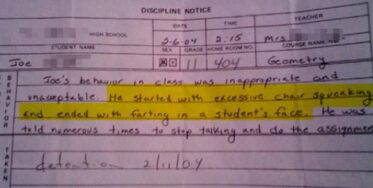 DISCIPLINE NOTICE
HIGH SCHOOL
DATE TIME TEACHER
2-6-04 2:15 Mrs
STUDENT NAME SEX GRADE HOME ROOM NO. COURSE NAME
Joe 11 404 Geometry
BEHAVIOR
Joe's behavior in class was inappropriate and
unacceptable. He started with excessive chair squeaking
and ended with farting in a student's face. He was
told numerous times to stop talking and do the assignment
TAKEN
detention 2/11/04